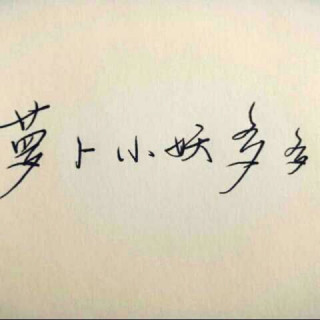 萝卜小妖多多